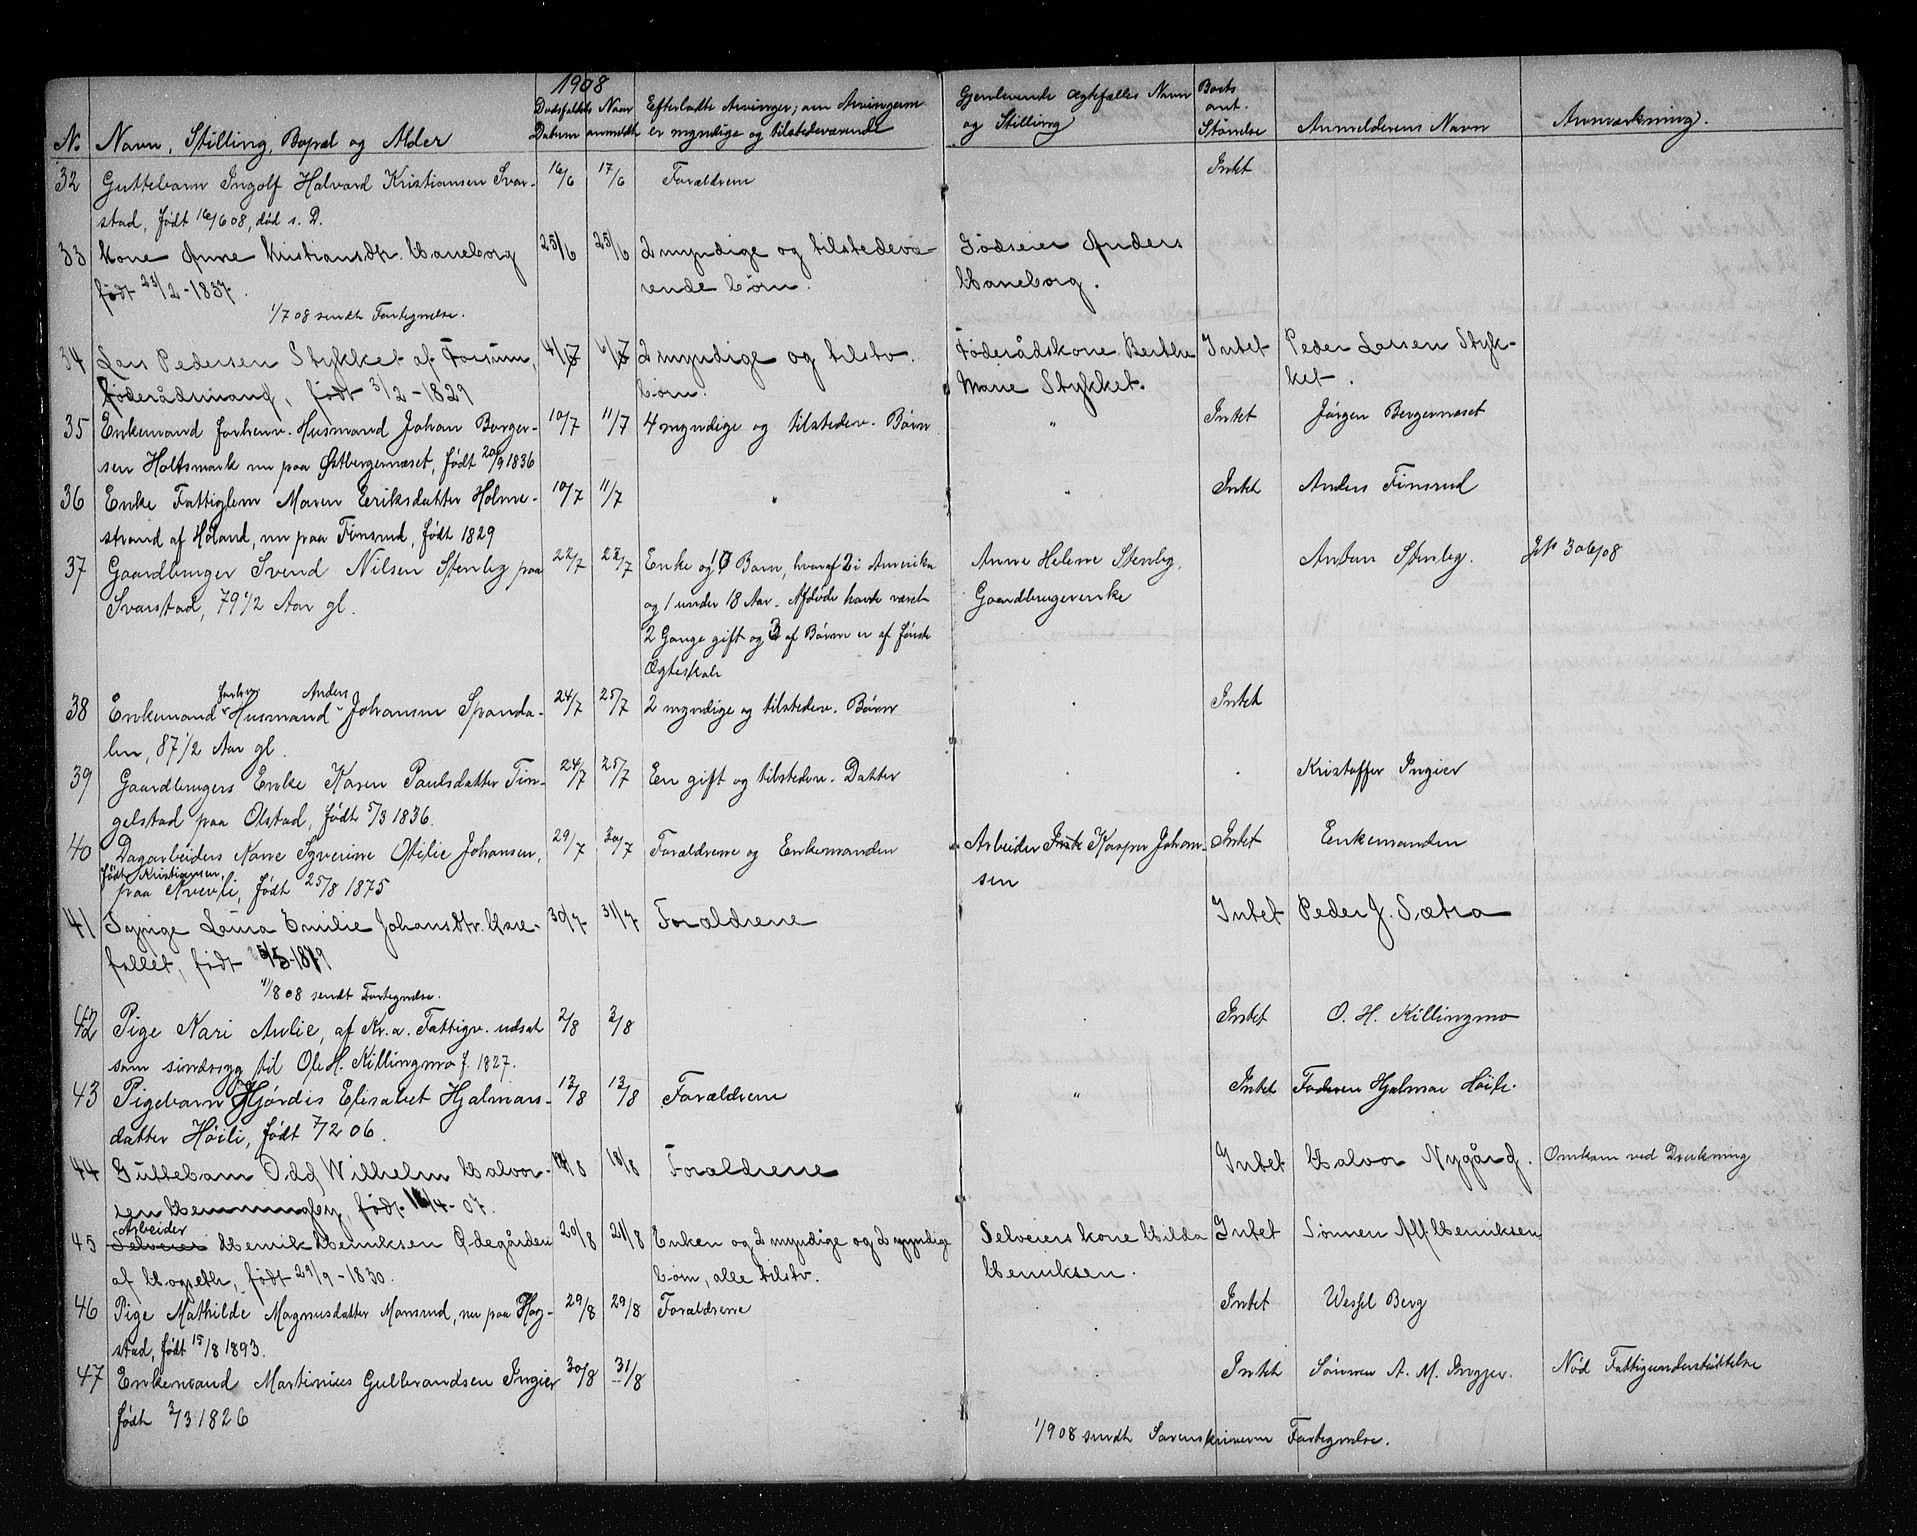 1908
No Navn, Stilling, Bopæl og Alder Dødsfaldets Datum Naar anmeldt Efterladte Arvinger; om Arvingerne er myndige og tilstedeværende Gjenlevende Ægtefælles Navn og Stilling Boets ant. Størrelse Anmelderens Navn Anmærkning.
32 Guttebarn Ingolf Halvard Kristiansen Svar- 16/6 17/6 Forældrene Intet
stad, født 16/6 08, død s. D.
33 Kone Anne Kristiansdtr. Haneborg 25/6 25/6 2 myndige og tilstedevæ- Godseier Anders
født 23/2 - 1837. rende børn. Haneborg.
1/7 08 sendt Fortegnelse.
34 Lars Pedersen Stykket af Forsum, 4/7 6/7 2 myndige og tilstv. Føderådskone Berthe Intet Peder Larsen Styk-
føderådsmand, født 3/2 - 1829 børn. Marie Stykket. ket.
35 Enkemand forhenv. Husmand Johan Borger- 10/7 11/7 4 myndige og tilstedev. Børn " Intet Jørgen Bergernæset
sen Holtsmark nu paa Østbergernæset, født 20/9 1836
36 Enke Fattiglem Maren Eriksdatter Holme- 10/7 11/7 " " Intet Anders Finsrud
strand af Høland, nu paa Finsrud, født 1829
37 Gaardbruger Svend Nilsen Stenby paa 22/7 22/7 Enke og 10 Barn, hvoraf 2 i Amerika Anne Helene Stenby, Anton Stenby. JN 306/08
Svarstad, 79 1/2 Aar gl. og 1 under 18 Aar. Afdøde havde været Gaardbrugerenke
2 Gange gift og 3 af Børnene er af første
Ægteskab
forhenv Anders
38 Enkemand Husmand Johansen Spanda- 24/7 25/7 2 myndige og tilstedev. Børn " Intet
len, 87 1/2 Aar gl.
39 Gaardbrugers Enke Karen Paulsdatter Tin- 24/7 25/7 En gift og tilstedev. Datter " " Kristoffer Ingier
gelstad paa Olstad, født 5/3 1836.
40 Dagarbeiders Kone Syverine Otilie Johansen, 29/7 30/7 Forældrene og Enkemanden Arbeider Kasper Johan- Intet Enkemanden
født Kristiansen,
paa født 25/8 1875 sen
41 Pige Laura Emilie Johansdtr. 30/7 31/7 Forældrene Intet Peder J. Sætra
fallet, født
1/8 08 sendt Fortegnelse.
42 Pige Kari Aulie, af Kr.a. Fattigv. udsat 2/8 3/8 Intet O. H. Killingmo
som sindssyg til Ole H. Killingmo f. 1827.
43 Pigebarn Hjørdis Elisabet Hjalmars- 12/8 12/8 Forældrene " Intet Faderen Hjalmar Høili.
datter Høili, født 7/2 06.
44 Guttebarn Odd Wilhelm Halvor- 18/8 Forældrene Intet Halvor Nygård. Omkom ved Drukning
sen Hemmingby, født 16/4 - 07.
Arbeider
45 Selveier Henrik Henriksen Ødegården 20/8 21/8 Enken og 2 myndige og 2 umyndige Selveierskone Hilda Intet Sønnen Alf Henriksen
af Hogseth, født 29/9 - 1830. børn, alle tilstv. Henriksen.
46 Pige Mathilde Magnusdatter Monsrud, nu paa Hog- 29/8 29/8 Forældrene " Intet Wessel Berg
stad, født 15/8 1893.
47 Enkemand Martinius Gulbrandsen Ingier 30/8 31/8 " Intet Sønnen A. M. Ingjer. Nød Fattigunderstøttelse
født 2/3 1826
1/9 08 sendt Sorenskriveren Fortegnelse.